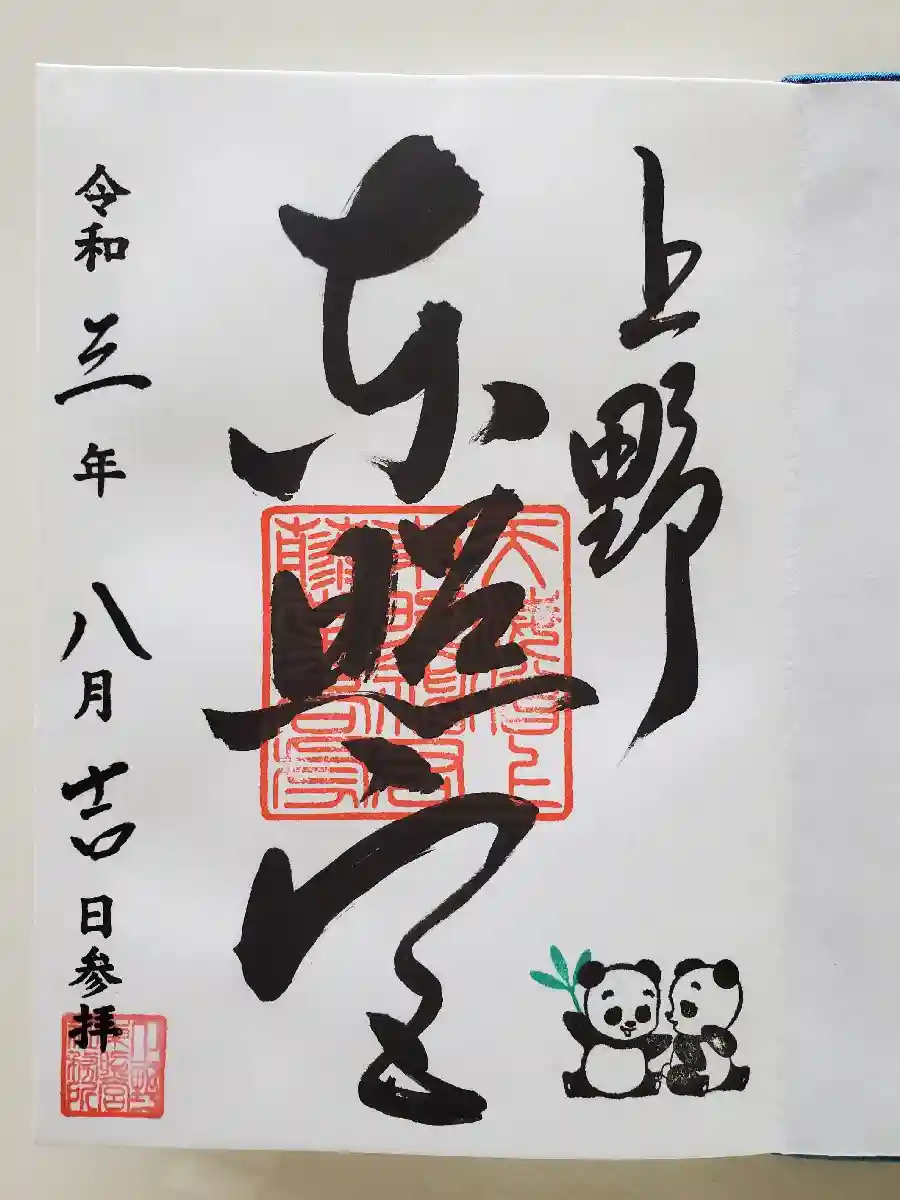 上野
東照宮
令和三年八月吉日参拝
上野
東照宮
社務所